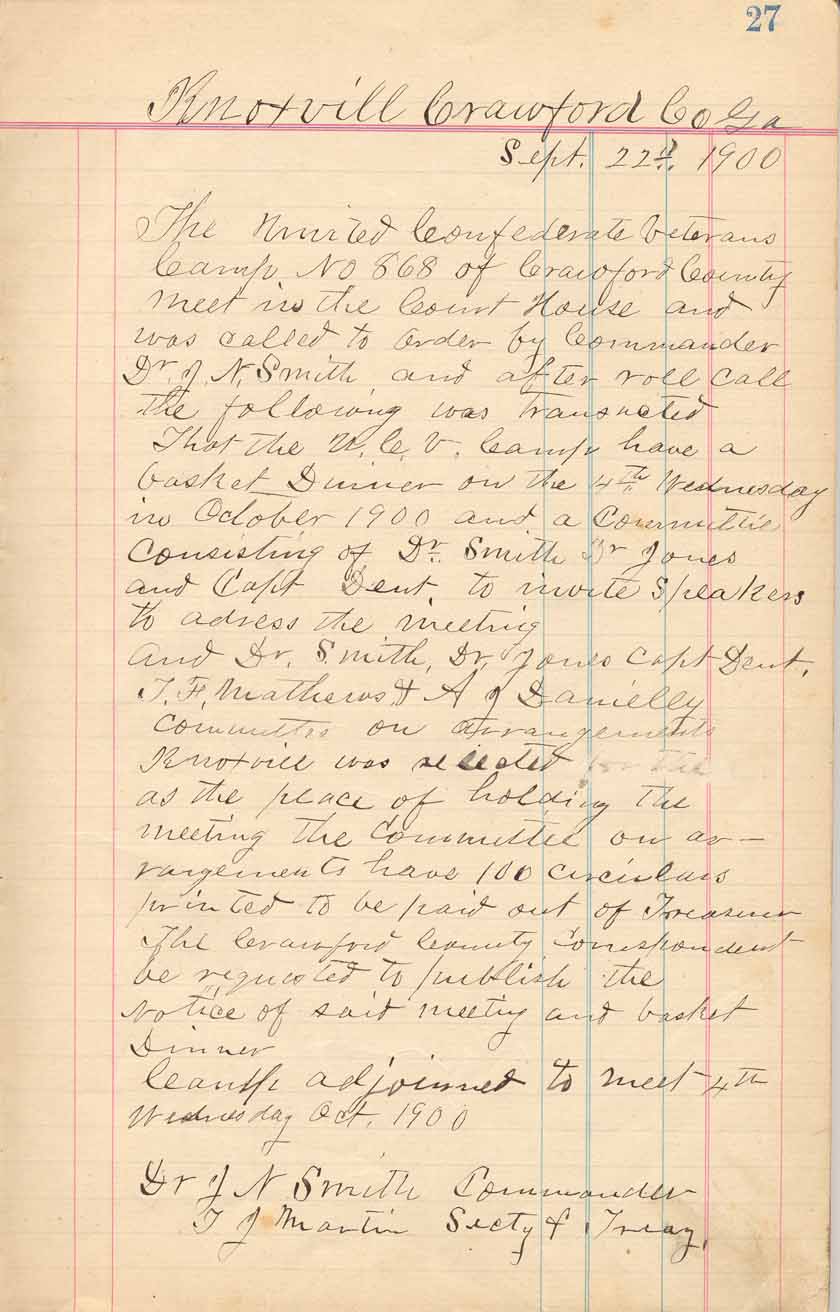 27
Knoxvill Crawford Co Ga
Sept. 22d, 1900
The United Confederate Veterans
Camp No 868 of Crawford County
meet in the Court House and
was called to order by Commander
Dr. J. N. Smith and after roll call
the following was transacted
That the U. C. V. Camp have a
basket Dinner on the 4th Wednesday
in October 1900 and a Committie
Consisting of Dr. Smith Dr Jones
and Capt Dent. to invite Speakers
to adress the meeting
and Dr. Smith, Dr. Jones Capt Dent,
T. F. Mathews & A J Danielly
Committee on arrangements
Knoxvill was selected for the
as the place of holding the
meeting the Committee on ar-
rangements have 100 circulars
printed to be paid out of Treasurer
The Crawford County Correspondent
be requsted to publish the
Notice of said meetig and basket
Dinner
Camp adjoinned to meet 4th
Wednesday Oct. 1900
Dr J N Smith Commander
T J Martin Secty & Treay.